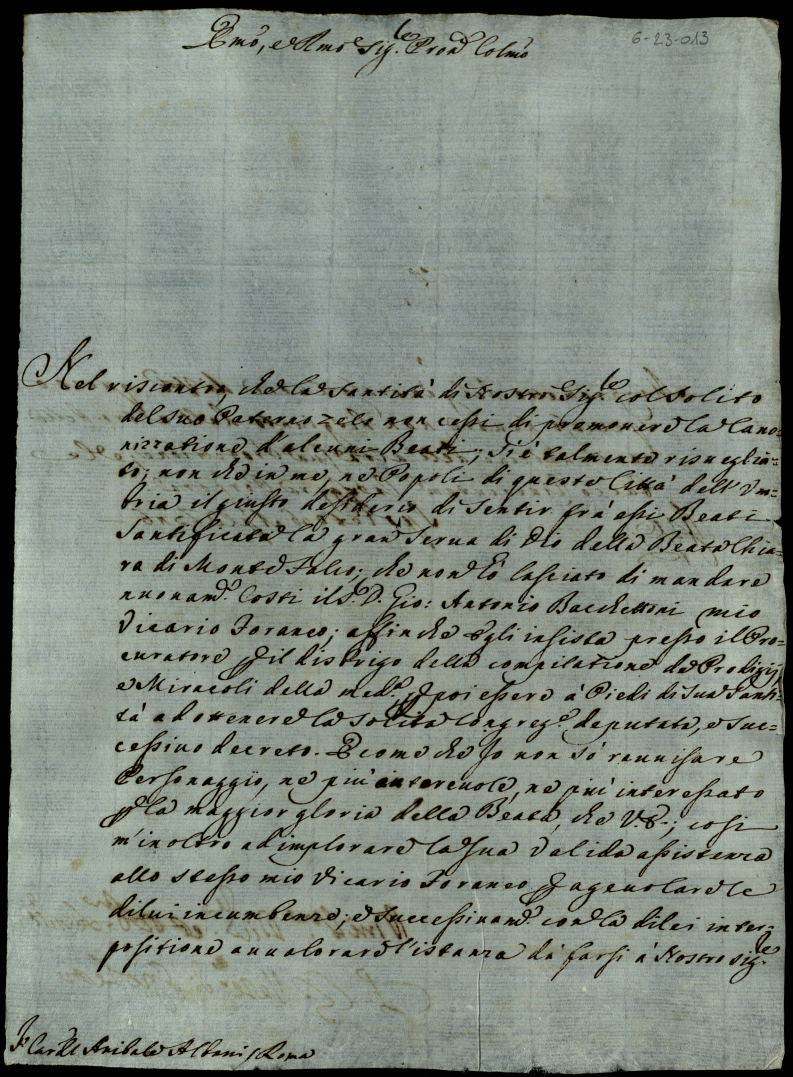 Emō, e Rmō Sig.re Pron̄ Colmō
6-23-013
Nel riscontro, che la Santità di Nostro Sig.re col solito
del suo Paterno zelo non cessi di promouere la Cano=
nizzatione d'alcuni Beati; si è talmente risueglia=
to; non che in me, ne Popoli di questa Città dell'Vm=
bria il giusto desiderio di sentir frà essi Beati
Santificata la gran Serua di Dio della Beata Chia=
ra di Monte Falco; che non hò lasciato di mandare
nuouam.e Costì il S.r D. Gio: Antonio Bacchettoni mio
Vicario Foraneo; affinche egli insista presso il Pro=
curatore p il distrigo della compilatione de Prodigij,
e Miracoli della med.a, e poi essere à Piedi di Sua Santi=
tà ad ottenere la solita Congreg.e deputata, e suc=
cessiuo decreto. E come che Io non sò rauuisare
Personaggio, ne più autoreuole, ne più interessato
p la maggior gloria della Beata, che V.E.; così
m'inoltro ad implorare la sua Valida assistenza
allo stesso mio Vicario Foraneo p ageuolare le
di lui incumbenze; e successiuam.e con la di lei inter=
positione auualorare l'istanza dà farsi à Nostro Sig.re
S.r Card.le Anibale Albani / Roma